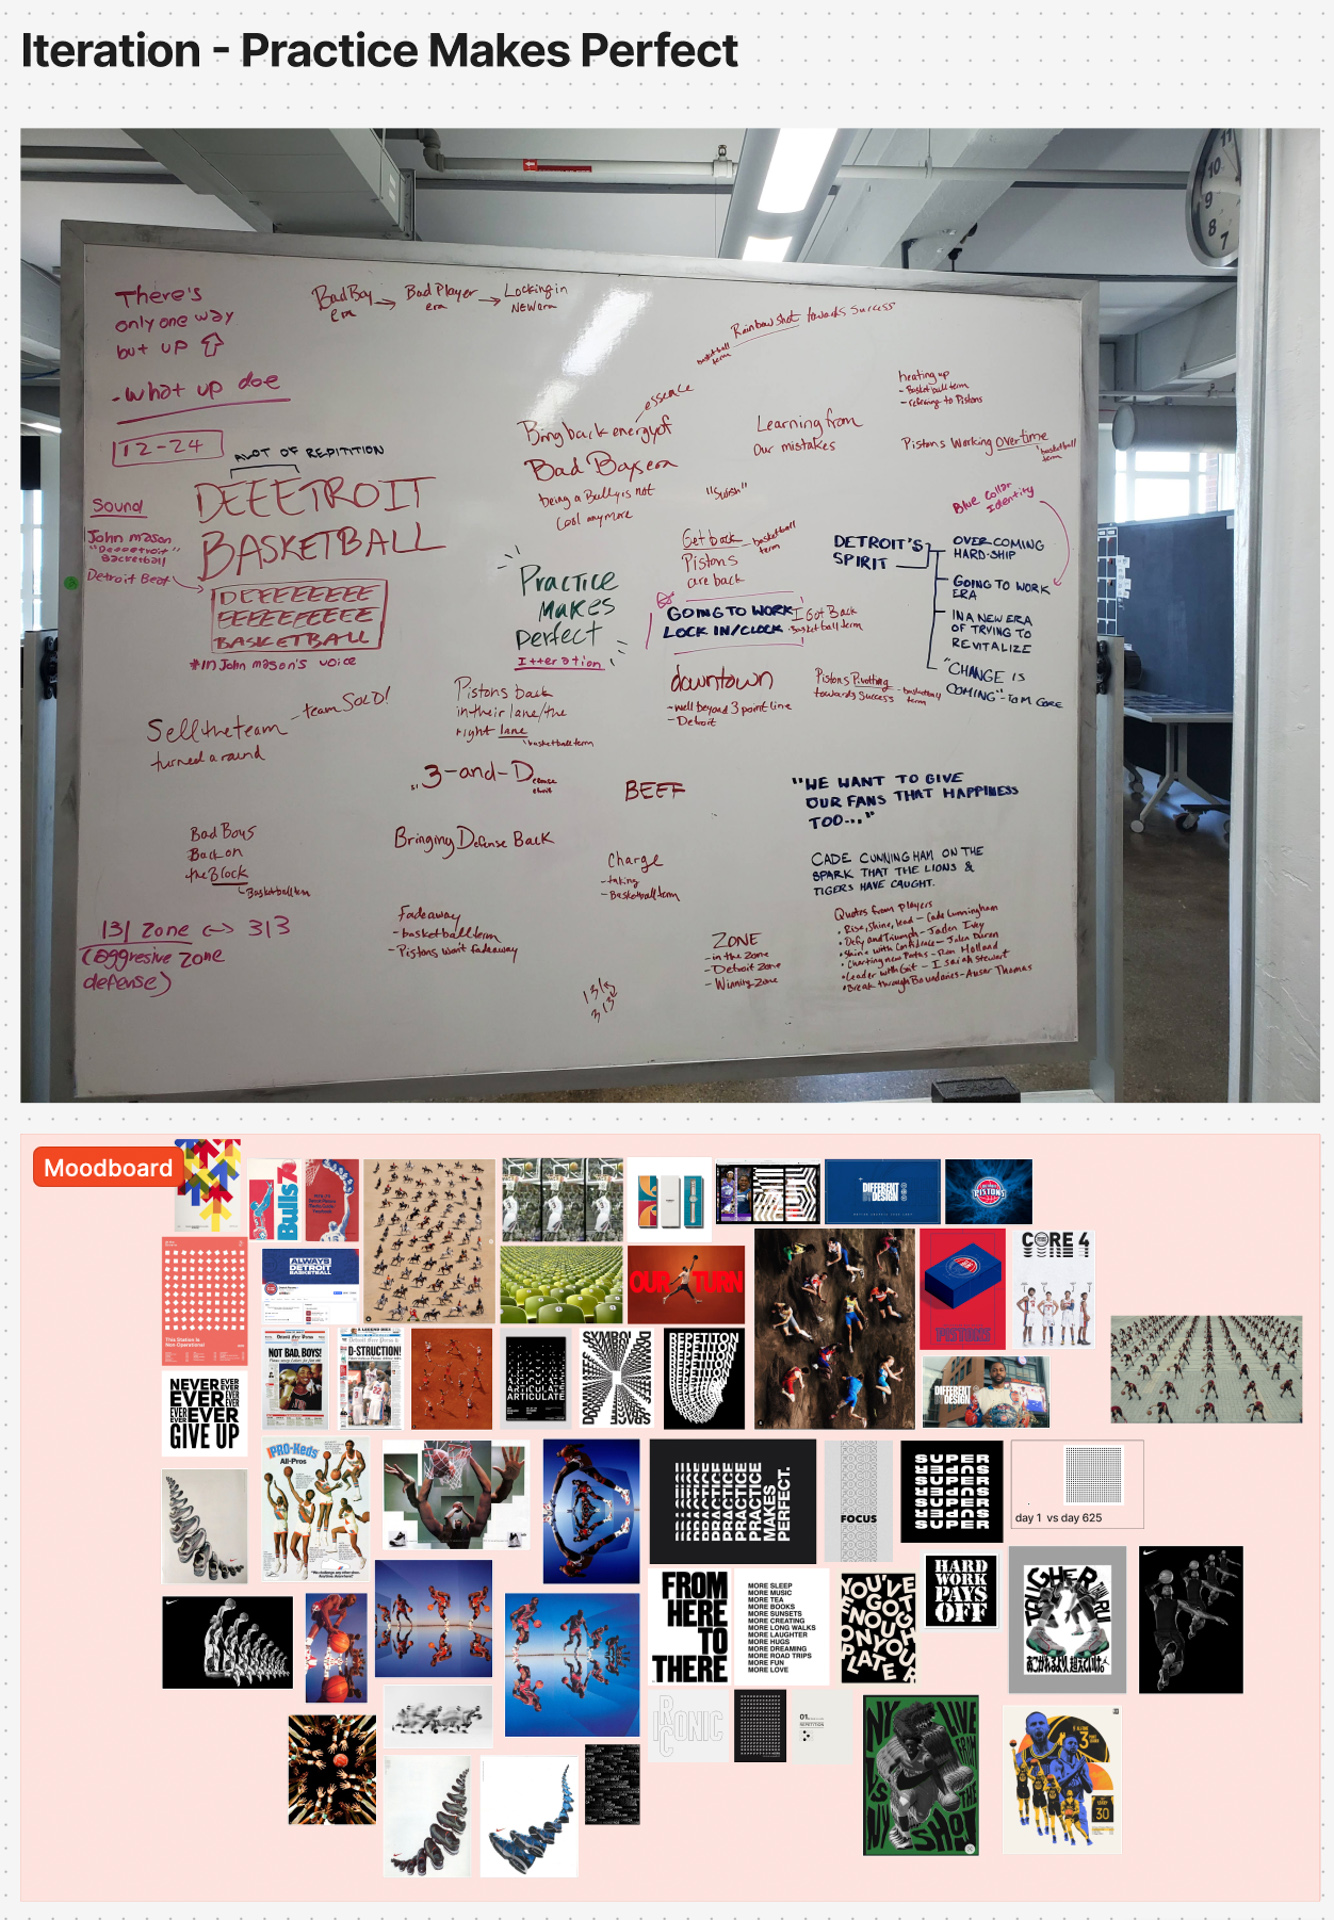 Iteration - Practice Makes Perfect
There's
only one way
but up
Bad Boy
era
Bad Player
era
Locking in
NEW era
Rainbow shot towards success
basketball
term
- what up doe
12-24
ALOT OF REPITITION
DEEETROIT
BASKETBALL
Sound
John mason
"Deeeetroit"
Basketball
Detroit Beat
DEEEEEEEE
EEEEEEEEEE
BASKETBALL
*IN John mason's voice
essence
Bring back energy of
Bad Boys era
being a Bully is not
cool anymore
Learning from
our mistakes
heating up
- Basketball term
- referring to Pistons
Pistons Working Overtime
basketball
term
"Swish"
Get back
basketball
term
Pistons
are back
Practice
Makes
Perfect
Itteration
GOING TO WORK
LOCK IN/CLOCK
I Got Back
Basketball term
Blue Collar
Identity
DETROIT'S
SPIRIT
OVERCOMING
HARD-SHIP
GOING TO WORK
ERA
IN A NEW ERA
OF TRYING TO
REVITALIZE
"CHANGE IS
COMING" - TOM GORE
downtown
- well beyond 3 point line
- Detroit
Pistons Pivoting
towards success
- basketball
term
Sell the team
- team SOLD!
turned around
Pistons back
in their lane/the
right lane
basketball term
3-and-D
BEEF
"WE WANT TO GIVE
OUR FANS THAT HAPPINESS
TOO..."
CADE CUNNINGHAM ON THE
SPARK THAT THE LIONS &
TIGERS HAVE CAUGHT.
Bad Boys
Back on
the Block
Basketball term
Bringing Defense Back
Charge
- taking
- Basketball term
131 Zone <-> 313
(aggresive zone
defense)
Fadeaway
- basketball term
- Pistons won't fadeaway
ZONE
- in the zone
- Detroit Zone
- Winning Zone
Quotes from players
• Rise, Shine, lead - Cade Cunningham
• Defy and Triumph - Jaden Ivey
• Shine with Confidence - Jalen Duren
• Charting new Paths - Ron Holland
• Leader with Grit - Isaiah Stewart
• Break through Boundaries - Ausar Thomas
Moodboard
Bulls
DIFFERENT
BY DESIGN
PISTONS
ALWAYS
DETROIT
BASKETBALL
OUR TURN
CORE 4
PISTONS
NOT BAD, BOYS!
D-STRUCTION!
ARTICULATE
ARTICULATE
REPETITON
DIFFERENT
BY DESIGN
NEVER EVER
EVER EVER
EVER EVER
GIVE UP
PRO-Keds
All-Pros
PRACTICE
PRACTICE
PRACTICE
PRACTICE
MAKES
PERFECT.
FOCUS
SUPER
SUPER
SUPER
SUPER
SUPER
SUPER
SUPER
day 1 vs day 625
FROM
HERE
TO
THERE
MORE SLEEP
MORE MUSIC
MORE TEA
MORE BOOKS
MORE SUNSETS
MORE CREATING
MORE LONG WALKS
MORE LAUGHTER
MORE HUGS
MORE DREAMING
MORE ROAD TRIPS
MORE FUN
MORE LOVE
YOU'VE
GOT
ENOUGH
ON YOUR
PLATE
HARD
WORK
PAYS
OFF
ICONIC
01.
REPETITION
3
30